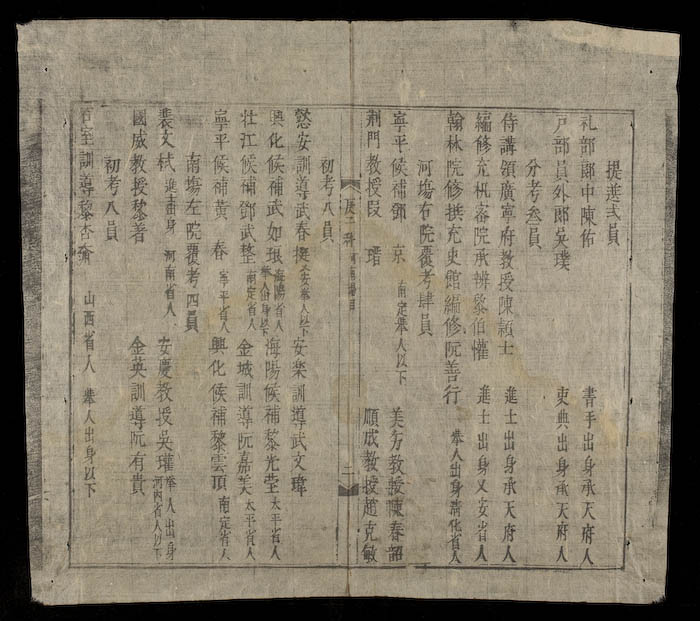 提進弍員
礼部郎中陳佑 書手出身承天府人
戸部員外郎吳璞 吏典出身承天府人
分考叁員
侍講領廣寧府教授陳頴士 進士出身承天府人
編修充机密院承辨黎伯懽 進士出身乂安省人
翰林院修撰充史館編修阮善行 舉人出身清化省人
河塲右院覆考肆員
寧平候補鄧京 南定舉人以下 美芳教授陳春韶
荆門教授段瑨 順成教授趙克敏
初考八員
慈安訓導武春 乂安舉人以下 安楽訓導武文瑋
興化候補武如琅 海陽省人舉人出身以下 海陽候補黎光瑩 太平省人
壮江候補鄧武整 南定省人 金城訓導阮嘉美 太平省人
寧平候補黄春 寧平省人 興化候補黎雲頂 南定省人
南塲左院覆考四員
裴文栻 進士出身河南省人 安慶教授吳瓘 舉人出身河内省人以下
國威教授黎著 金英訓導阮有貴
初考八員
石室訓導黎 山西省人 舉人出身以下